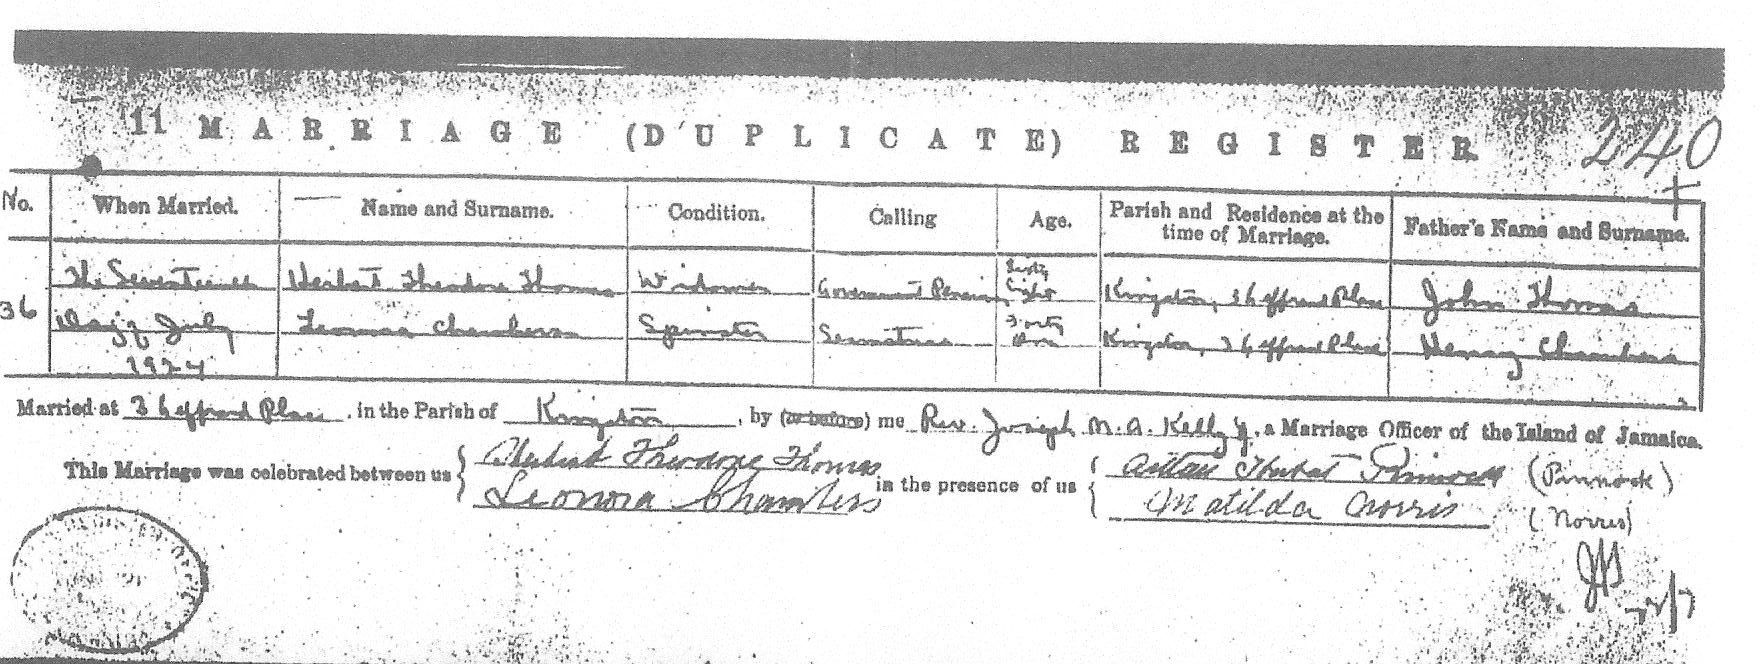 11 MARRIAGE (DUPLICATE) REGISTER 240
No. When Married. Name and Surname. Condition. Calling Age. Parish and Residence at the time of Marriage. Father's Name and Surname.
The Seventeenth Herbert Theodore Thomas Widower Government Pensioner Sixty Eight Kingston, 3 Place John Thomas
36 Day of July Leonora Chambers Spinster Seamstress Forty One Kingston, 3 Place Henry Chambers
1924
Married at 3 Place, in the Parish of Kingston, by (or before) me Rev. Joseph M. A. Kelly, a Marriage Officer of the Island of Jamaica.
This Marriage was celebrated between us { Herbert Theodore Thomas
Leonora Chambers in the presence of us { Herbert Pinnock (Pinnock)
Matilda Norris (Norris)